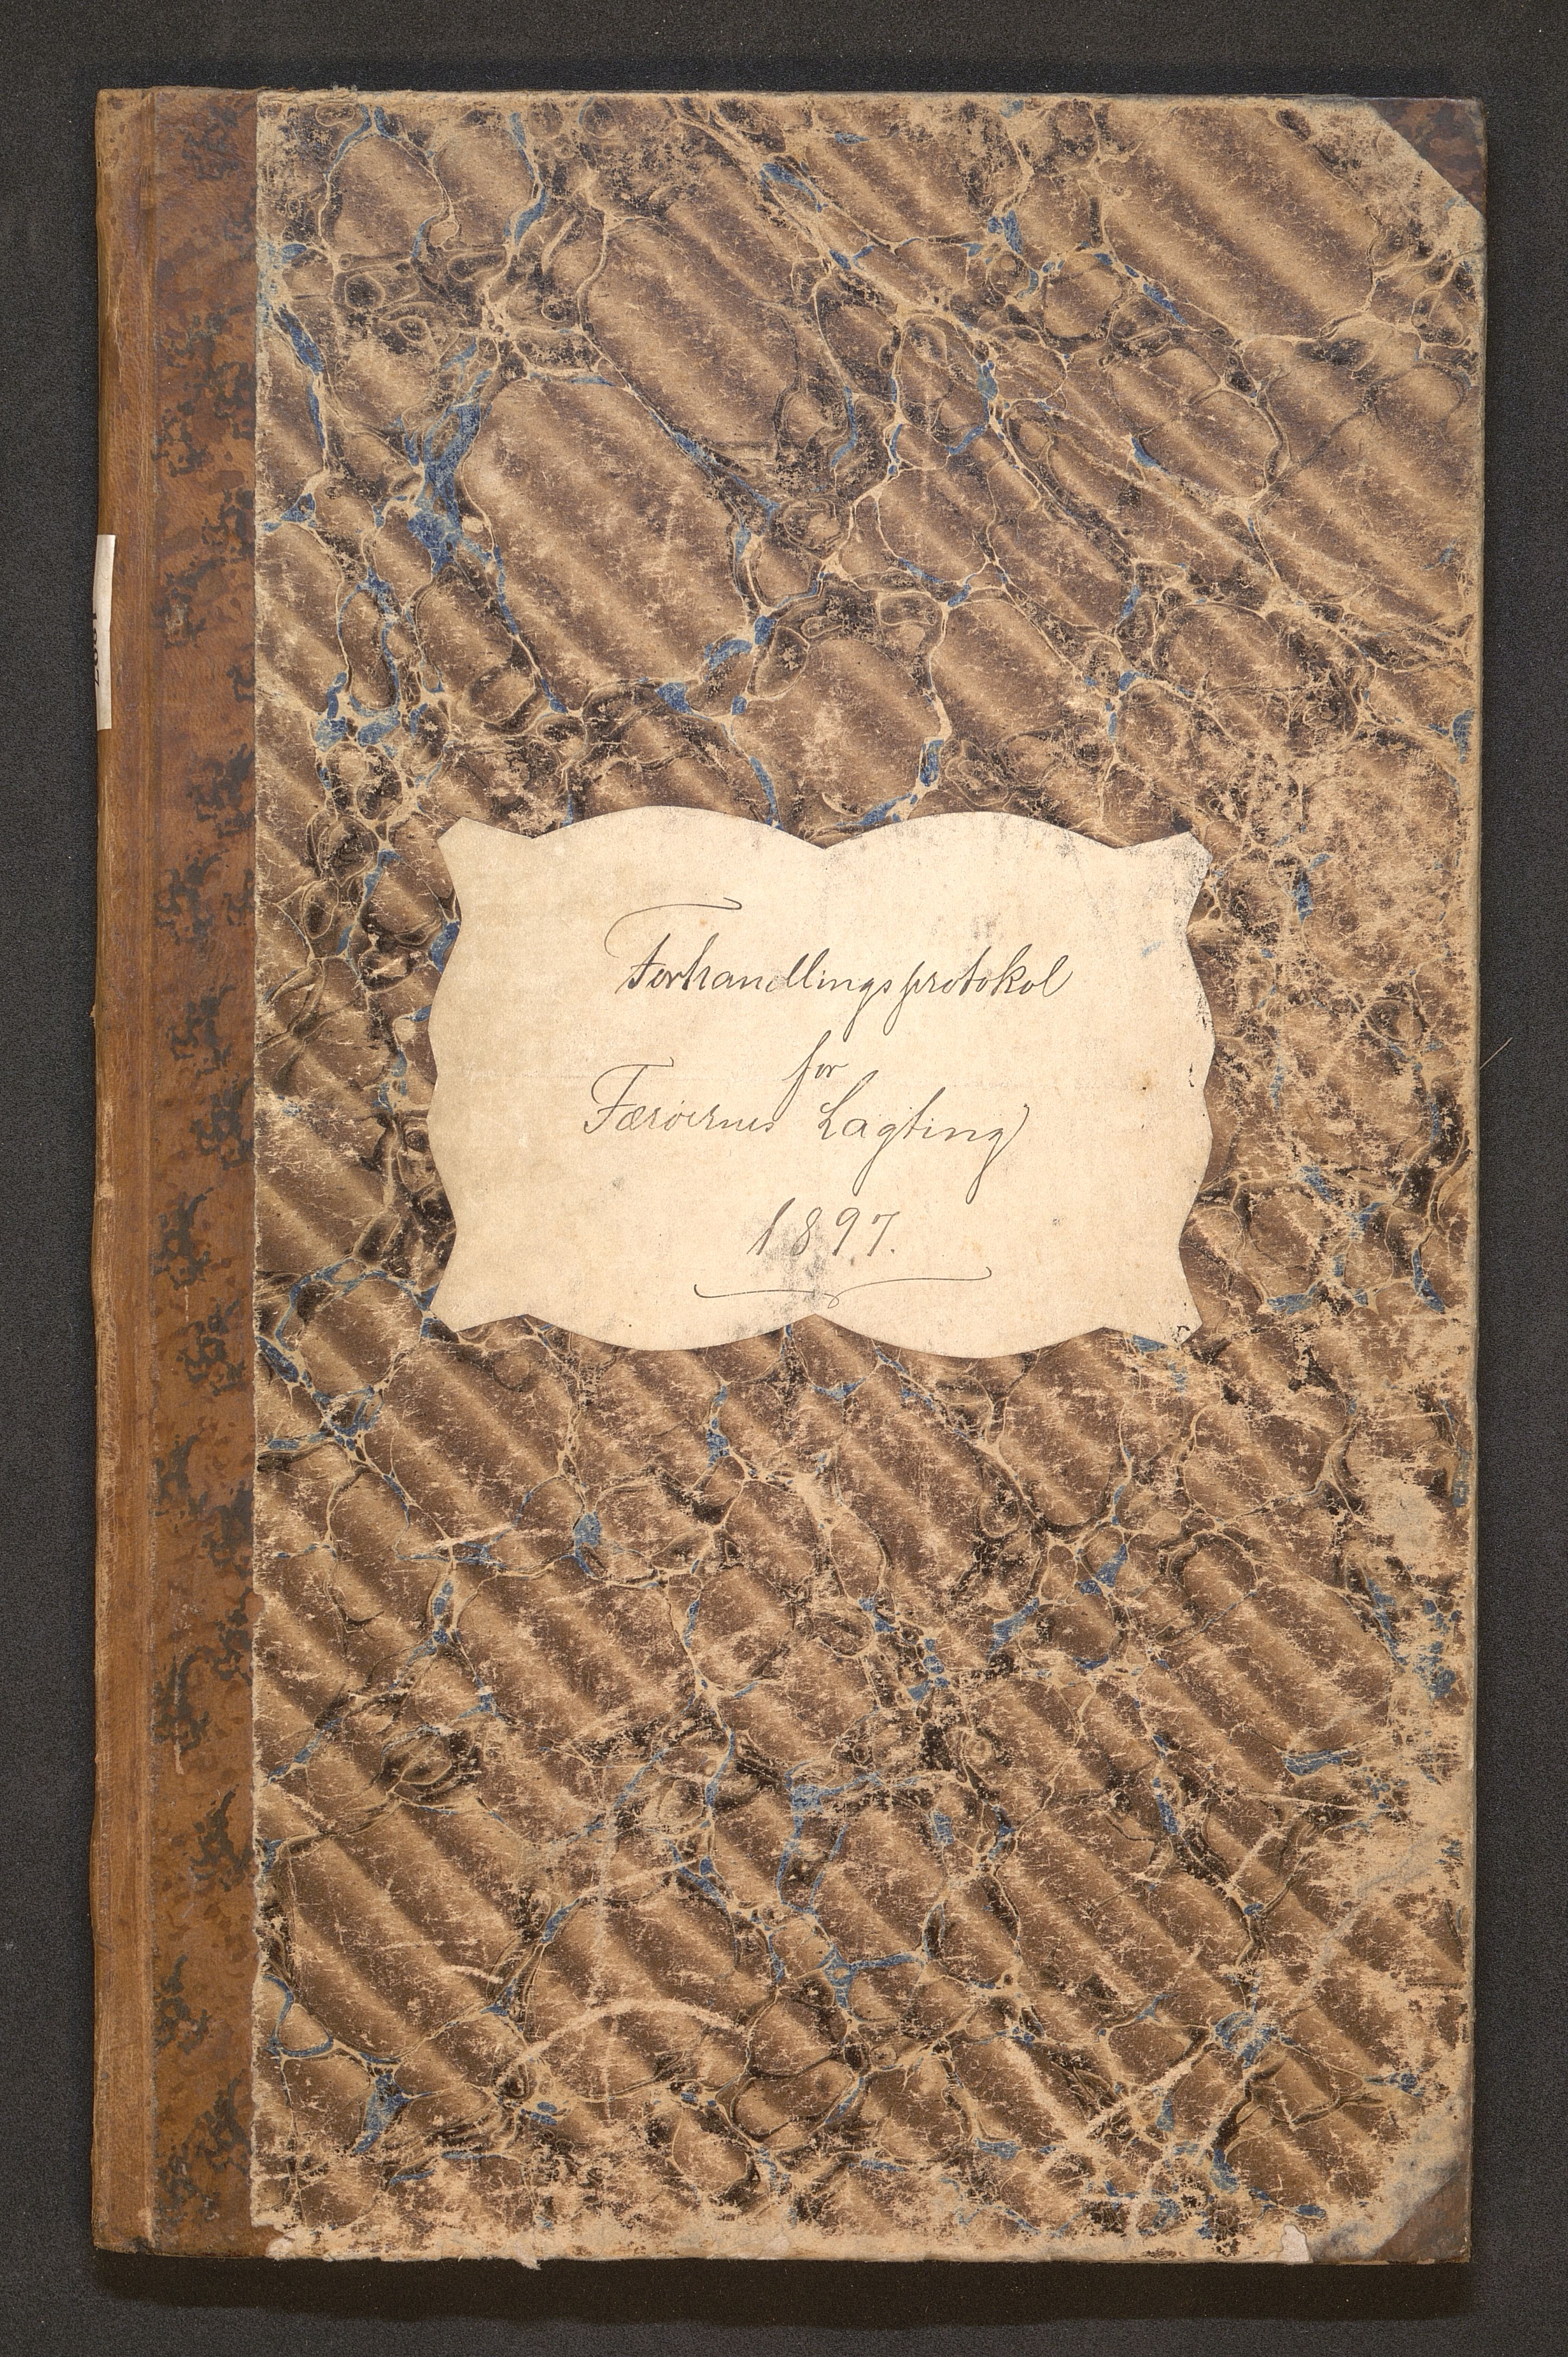 Forhandlingsprotokol
for
Færøernes Lagting
1897.